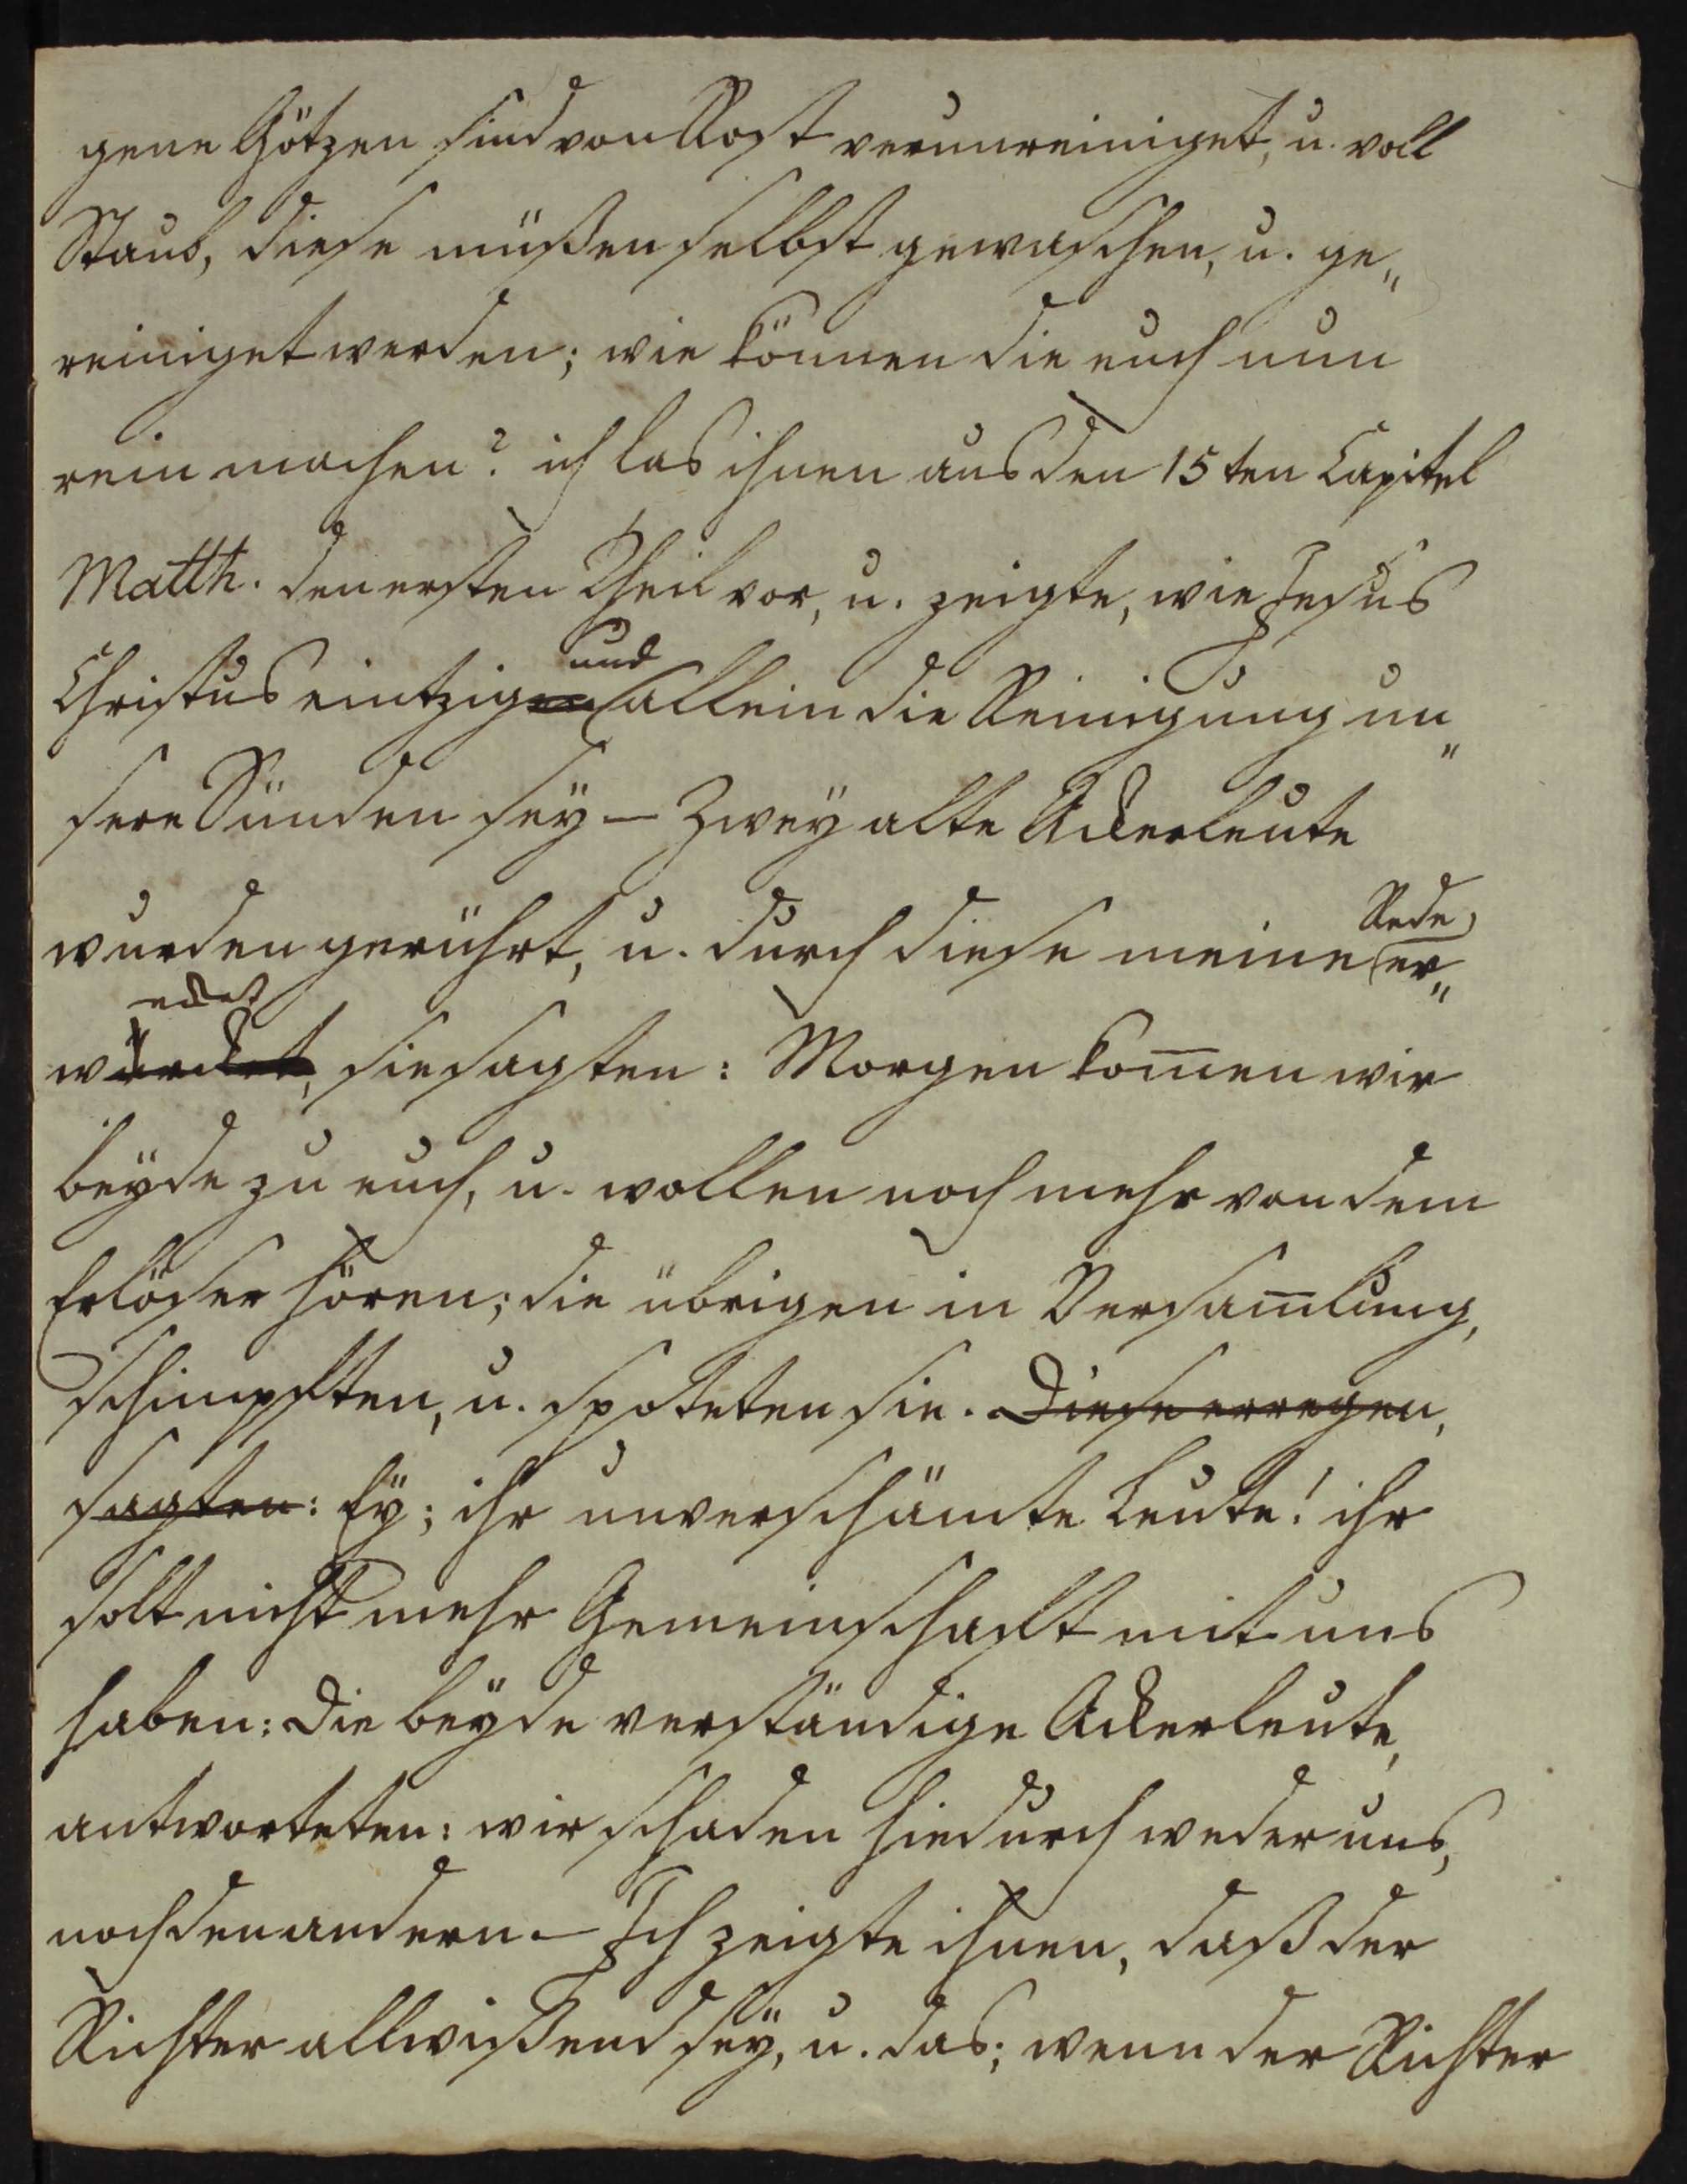 gene Götzen sind von Rost verunreiniget, u. voll
Staub, diese müßen selbst gewaschen, u. ge„
reiniget werden; wie können die euch nun
rein machen? ich las ihnen aus den 15ten Capitel
Matth. den ersten Theil vor, u. zeigte, wie Jesus
Christus eintzig und allein die Reinigung un„
sere Sünden seÿ – Zweÿ alte Ackerleute
wurden gerührt, u. durch diese meine Rede er„
weckt, sie sagten: Morgen kom̅en wir
beÿde zu euch, u. wollen noch mehr von dem
Erlöser hören; die übrigen in Versam̅lung,
schimpften, u. spoteten sie. Diese erregen,
sagten: Eÿ; ihr unverschämte Leute! ihr
solt nicht mehr Gemeinschaft mit uns
haben: Die beÿde verständige Ackerleute,
antworteten: wir schaden hiedurch weder uns,
noch den andern. – Ich zeigte ihnen, daß der
Richter allwißend seÿ, u. das; wenn der Richter